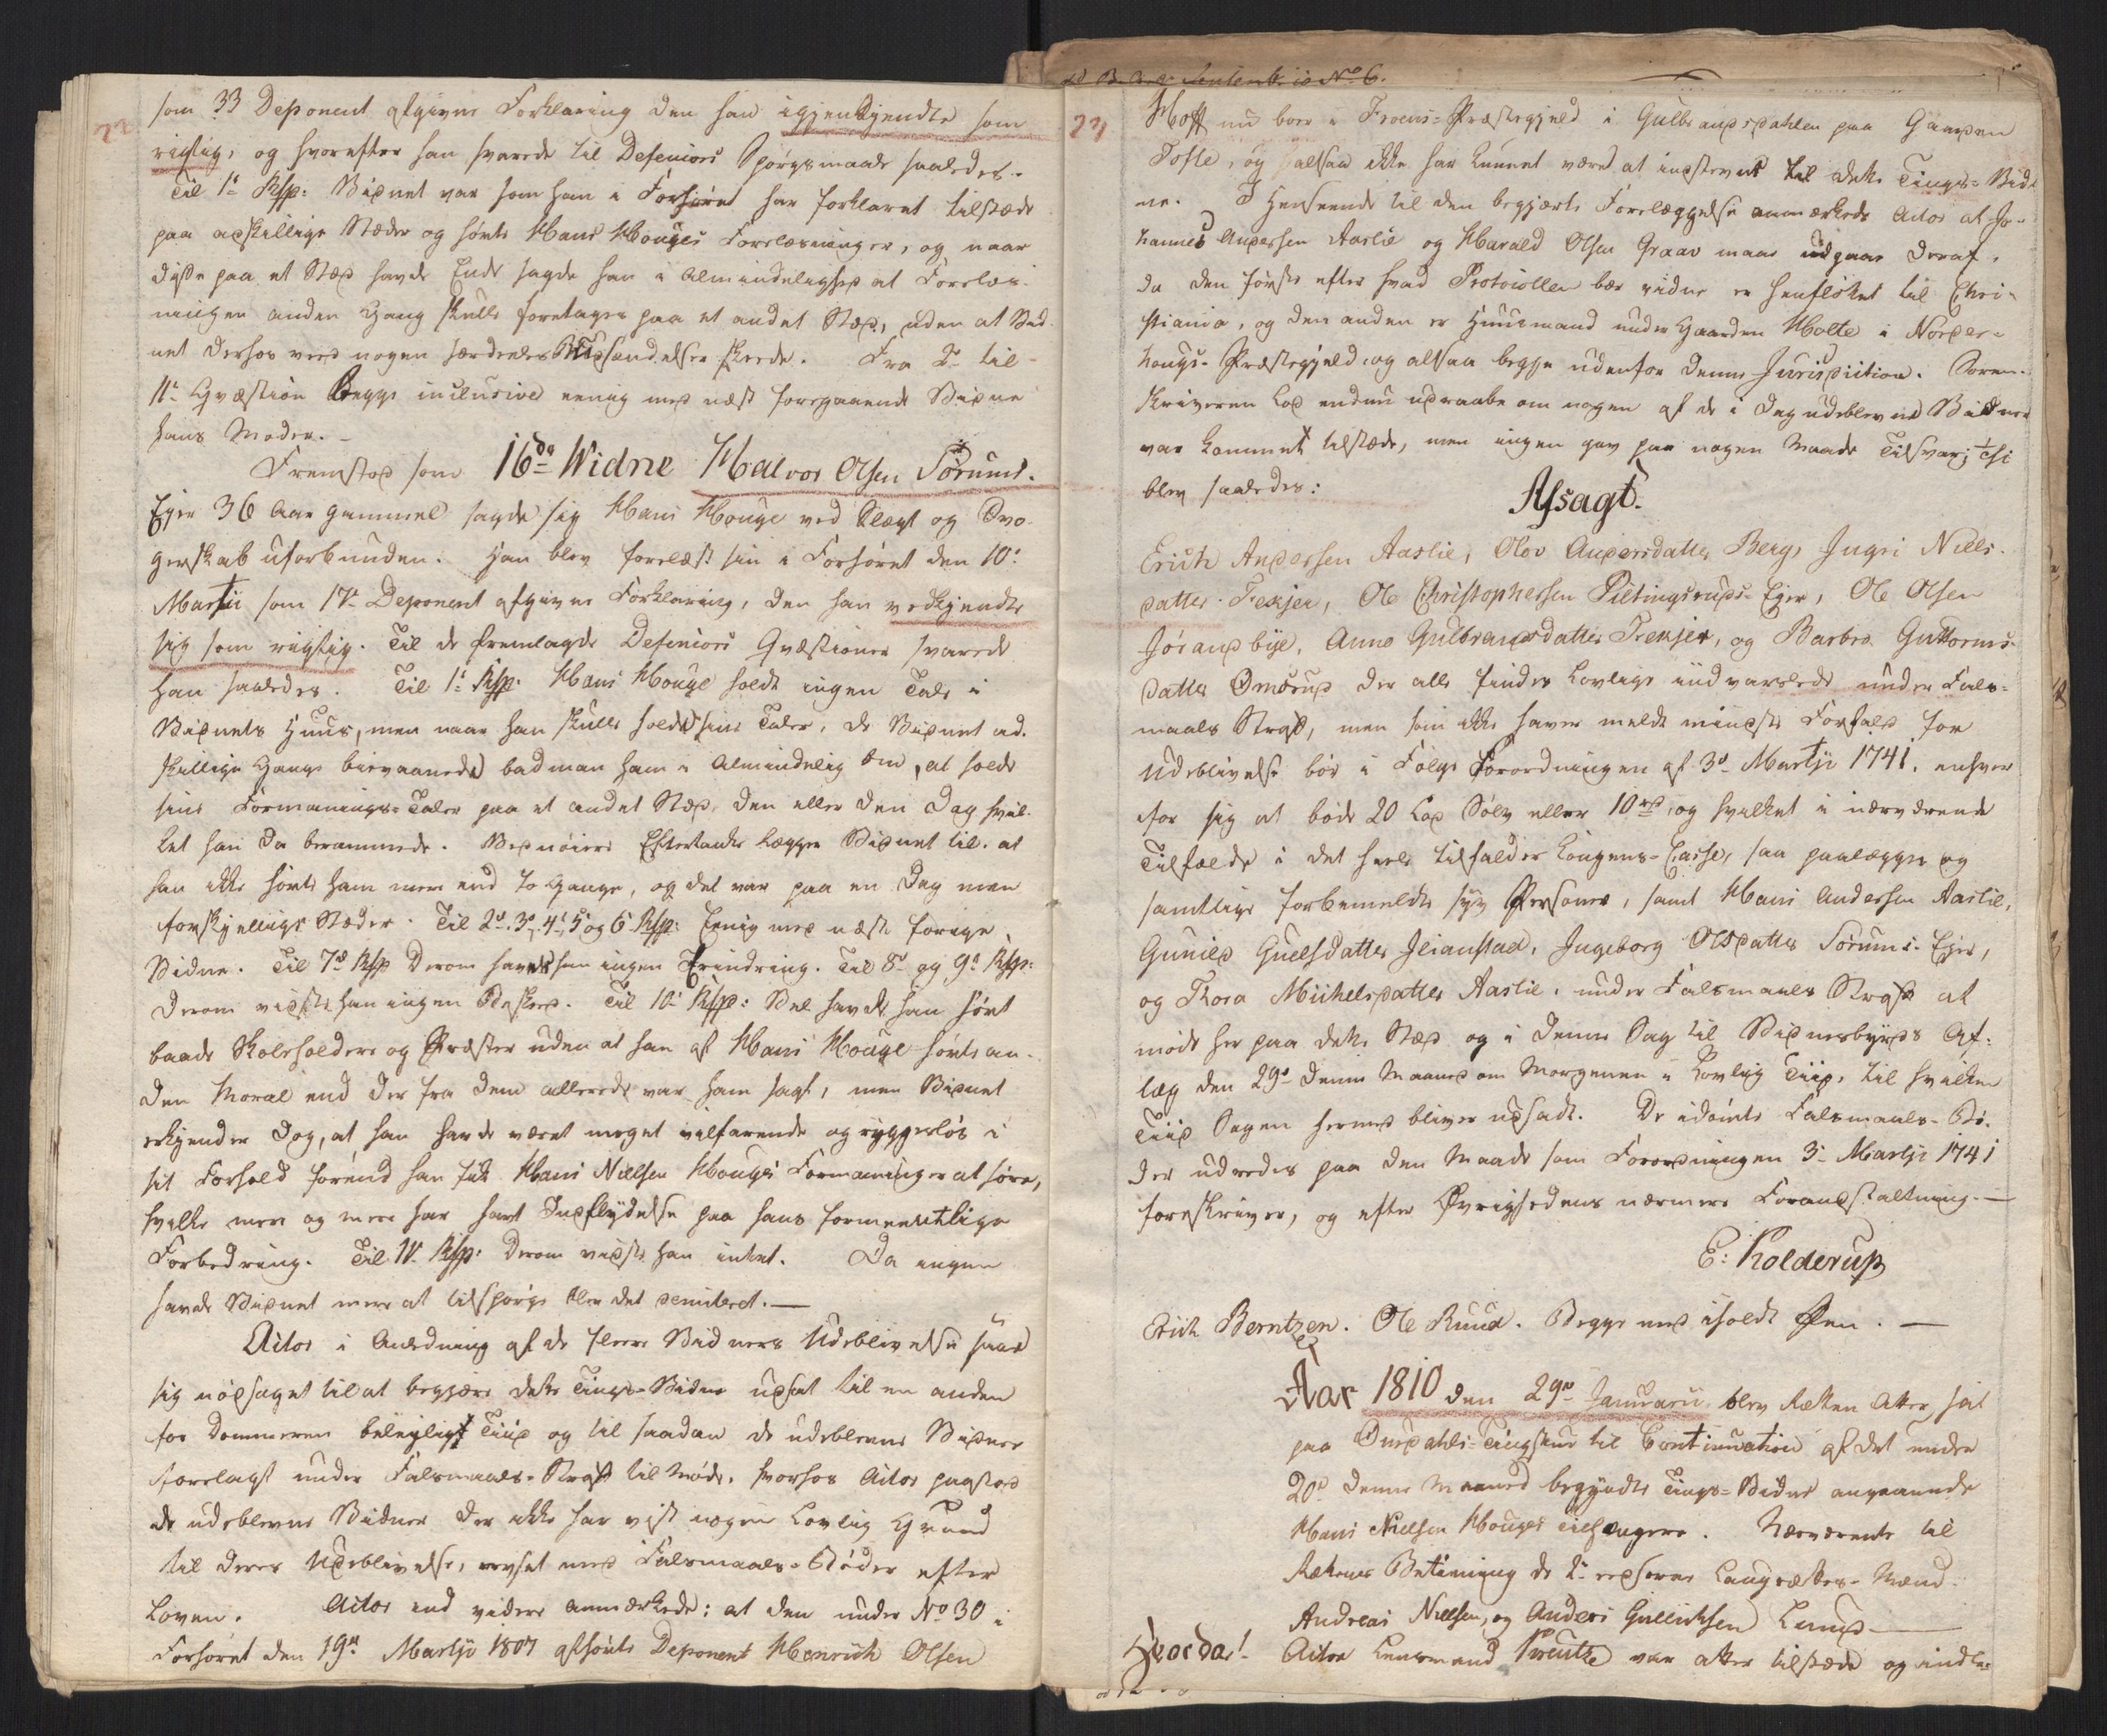 22
som 33 Deponent afgivne Forklaring den han igjenkjendte som
rigtig, og hvorefter han svarede til Defensors Spørgsmaale saaledes.
Til 1ste Rsp: Vidnet var som han i Forhøret har forklaret tilstæde
paa adskillige Stæder og hørte Hans Houges Forelæsninger, og naar
disse paa et Stæd havde Ende sagde han i Almindelighed at Forelæs-
ningen anden Gang skulle foretages paa et andet Stæd, uden at Vid-
net derhos veed nogen særdeles Udsendelser skeede. Fra 2den til
11te Qvæstion begge inclusive eenig med næst foregaaende Vidne
hans Moder.
Fremstod som 16de Widne Halvor Olsen Sørums-
Ejer 36 Aar gammel sagde sig Hans Houge ved Slægt og Svo-
gerskab uforbunden. Han blev forelæst sin i Forhøret den 10de
Martii som 17de Deponent afgivne Forklaring, den han vedkjendte
sig som rigtig. Til de fremlagde Defensors Qvæstioner svarede
han saaledes. Til 1ste Rsp: Hans Houge holdt ingen Tale i
Vidnets Huus, men naar han skulle holde sine Taler, de Vidnet ad-
skillige Gange bievaanede) bad man ham i Almindelig om, at holde
sine Formanings-Taler paa et andet Stæd, den eller den Dag hvil-
ket han da berammede. Ved nøiere Eftertanke lægger Vidnet til, at
han ikke hørte ham mere end to Gange, og det var paa en Dag men
forskjellige Stæder. Til 2d. 3d. 4d. 5 og 6 Rsp: Eenig med næste forrige
Vidne. Til 7de Rsp Derom havde han ingen Erindring. Til 8de og 9de Rsp:
Derom vidste han ingen Beskeed. Til 10de Rsp: Vel havde han hørt
baade Skoleholdere og Præster uden at han af Hans Houge hørte an-
den Moral end der fra dem allerede var ham sagt, men Vidnet
erkjender dog, at han havde været meget vilfarende og ryggesløs i
sit Forhold førend han fik Hans Nielsen Houges Formaninger at høre,
hvilke mere og mere har havt Indflydelse paa hans formeentlige
Forbedring. Til 11te Rsp: Derom vidste han intet. Da ingen
havde Vidnet mere at tilspørge blev det demiteret.
Actor i Anledning af de fleere Vidners Udeblivelse saae
sig nødsaget til at begjære dette Tings-Vidne udsat til en anden
for Dommeren beleyligst Tiid og til saadan de udeblevne Vidner
forelagt under Falsmaals-Straf til Møde, hvorhos Actor paastod
de udeblevne Vidner der ikke har vist nogen Lovlig Grund
til deres Udeblivelse, anset med Falsmaals-Bøder efter
Loven. Actor end videre anmærkede: at den under No 30 i
Forhøret den 19de Martji 1807 afhørte Deponent Henrich Olsen
23
Hoff nu boer i Froens-Præstegjeld i Gulbrandsdahlen paa Gaarden
Tofte, og altsaa ikke har kunnet været at indstevnt til dette Tings-Vid-
ne. I Henseende til den begjærte Forelæggelse anmærkede Actor at Jo-
hannes Andersen Aaslie og Harald Olsen Graav maae udgaae deraf,
da den første efter hvad Protocollen bær vidne er henflöttet til Chri-
stiania, og den anden er Huusmand under Gaarden Holte i Norder-
hougs-Præstegjeld og altsaa begge udenfor denne Jurisdiction. Soren-
skriveren lod endnu udraabe om nogen af de i Dag udeblevne Vidner
var kommet tilstæde, men ingen gav paa nogen Maade Tilsvar; Thi
blev saaledes:
Afsagt.
Erich Andersen Aaslie, Olov Andersdatter Berg, Ingri Niels-
datter Frekjer, Ole Christophersen Piltingsruds-Ejer, Ole Olsen
Jörandbye, Anne Gulbrandsdatter Trekjer, og Barbro Guttorms-
datter Omdsrud der alle findes Lovlige indvarslede under Fals-
maals Straf, men som ikke haver meldt mindste Forfald for
Udeblivelse bör i Følge Forordningen af 3de Martji 1741. enhver
for sig at bøde 20 Lod Sølv eller 10 rd, og hvilket i nærværende
Tilfælde i det heele tilfalder Kongens-Casse, saa paalægges og
samtlige forbemeldte syv Personer, samt Hans Andersen Aaslie,
Gunild Guelsdatter Jeianstad, Ingeborg Olsdatter Sørums-Ejer,
og Thora Michelsdatter Aaslie, under Falsmaals Straf at
møde her paa dette Stæd og i denne Sag til Vidnesbyrds Af-
læg den 29de denne Maaned om Morgenen i Lovlig Tiid, til hvilken
Tiid Sagen hermed bliver udsadt. De idømte Falsmaals-Bö-
der udredes paa den Maade som Forordningen 3de Martji 1741
foreskriver, og efter Øvrighedens nærmere Foranstaltning.
E: Kolderup
Erich Berntzen. Ole Ruud. Begge med iholdt Pen.
Aar 1810 den 29de Januarii blev Retten atter sat
paa Snasdahls-Tingstue til Continuation af det under
20de denne Maaned begyndte Tings-Vidne angaaende
Hans Nielsen Houges Tilhængere. Nærværende til
Rettens Betiening de 2de eedsorne Laugrettes-Mænd
Andreas Nielsen, og Anders Gullichsen Lund
Hvorda! Actor Lensmand Kreutz var atter tilstæde og indle-